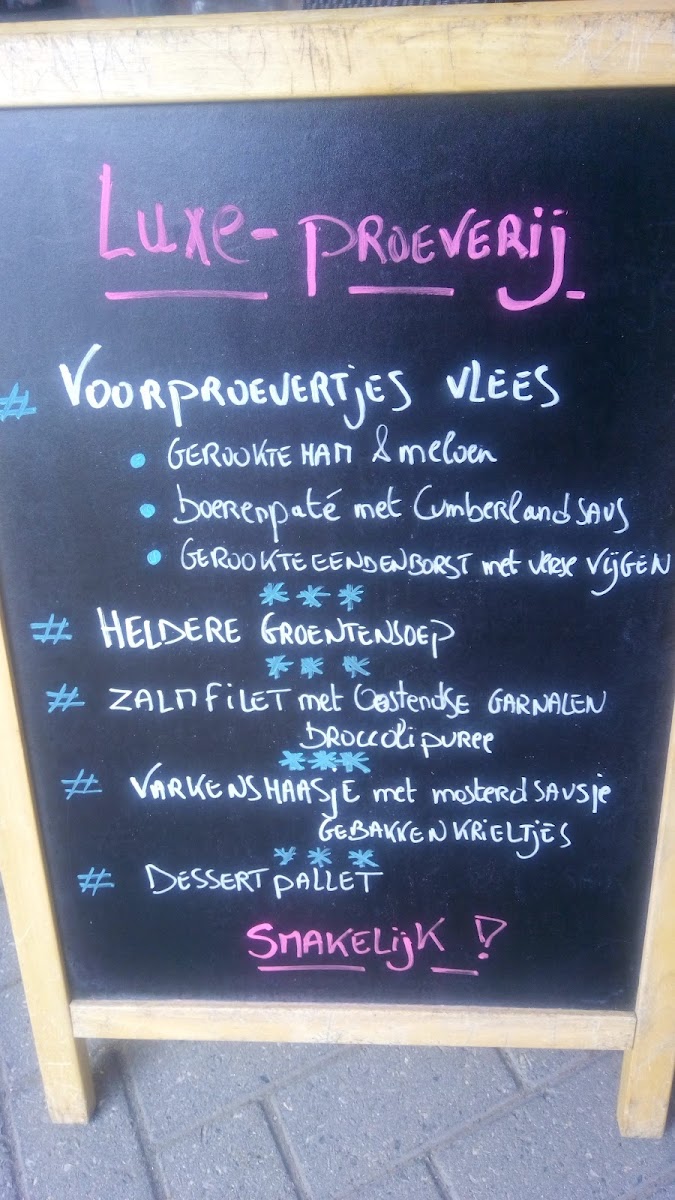 Luxe-proeverij
# Voorproevertjes vlees
• Gerookte ham & meloen
• boerenpaté met Cumberland saus
• Gerookte eendenborst met verse vijgen
***
# Heldere groentensoep
***
# Zalmfilet met Oostendse garnalen
broccoli puree
***
# Varkenshaasje met mosterdsausje
gebakken krieltjes
***
# Dessertpallet
Smakelijk !